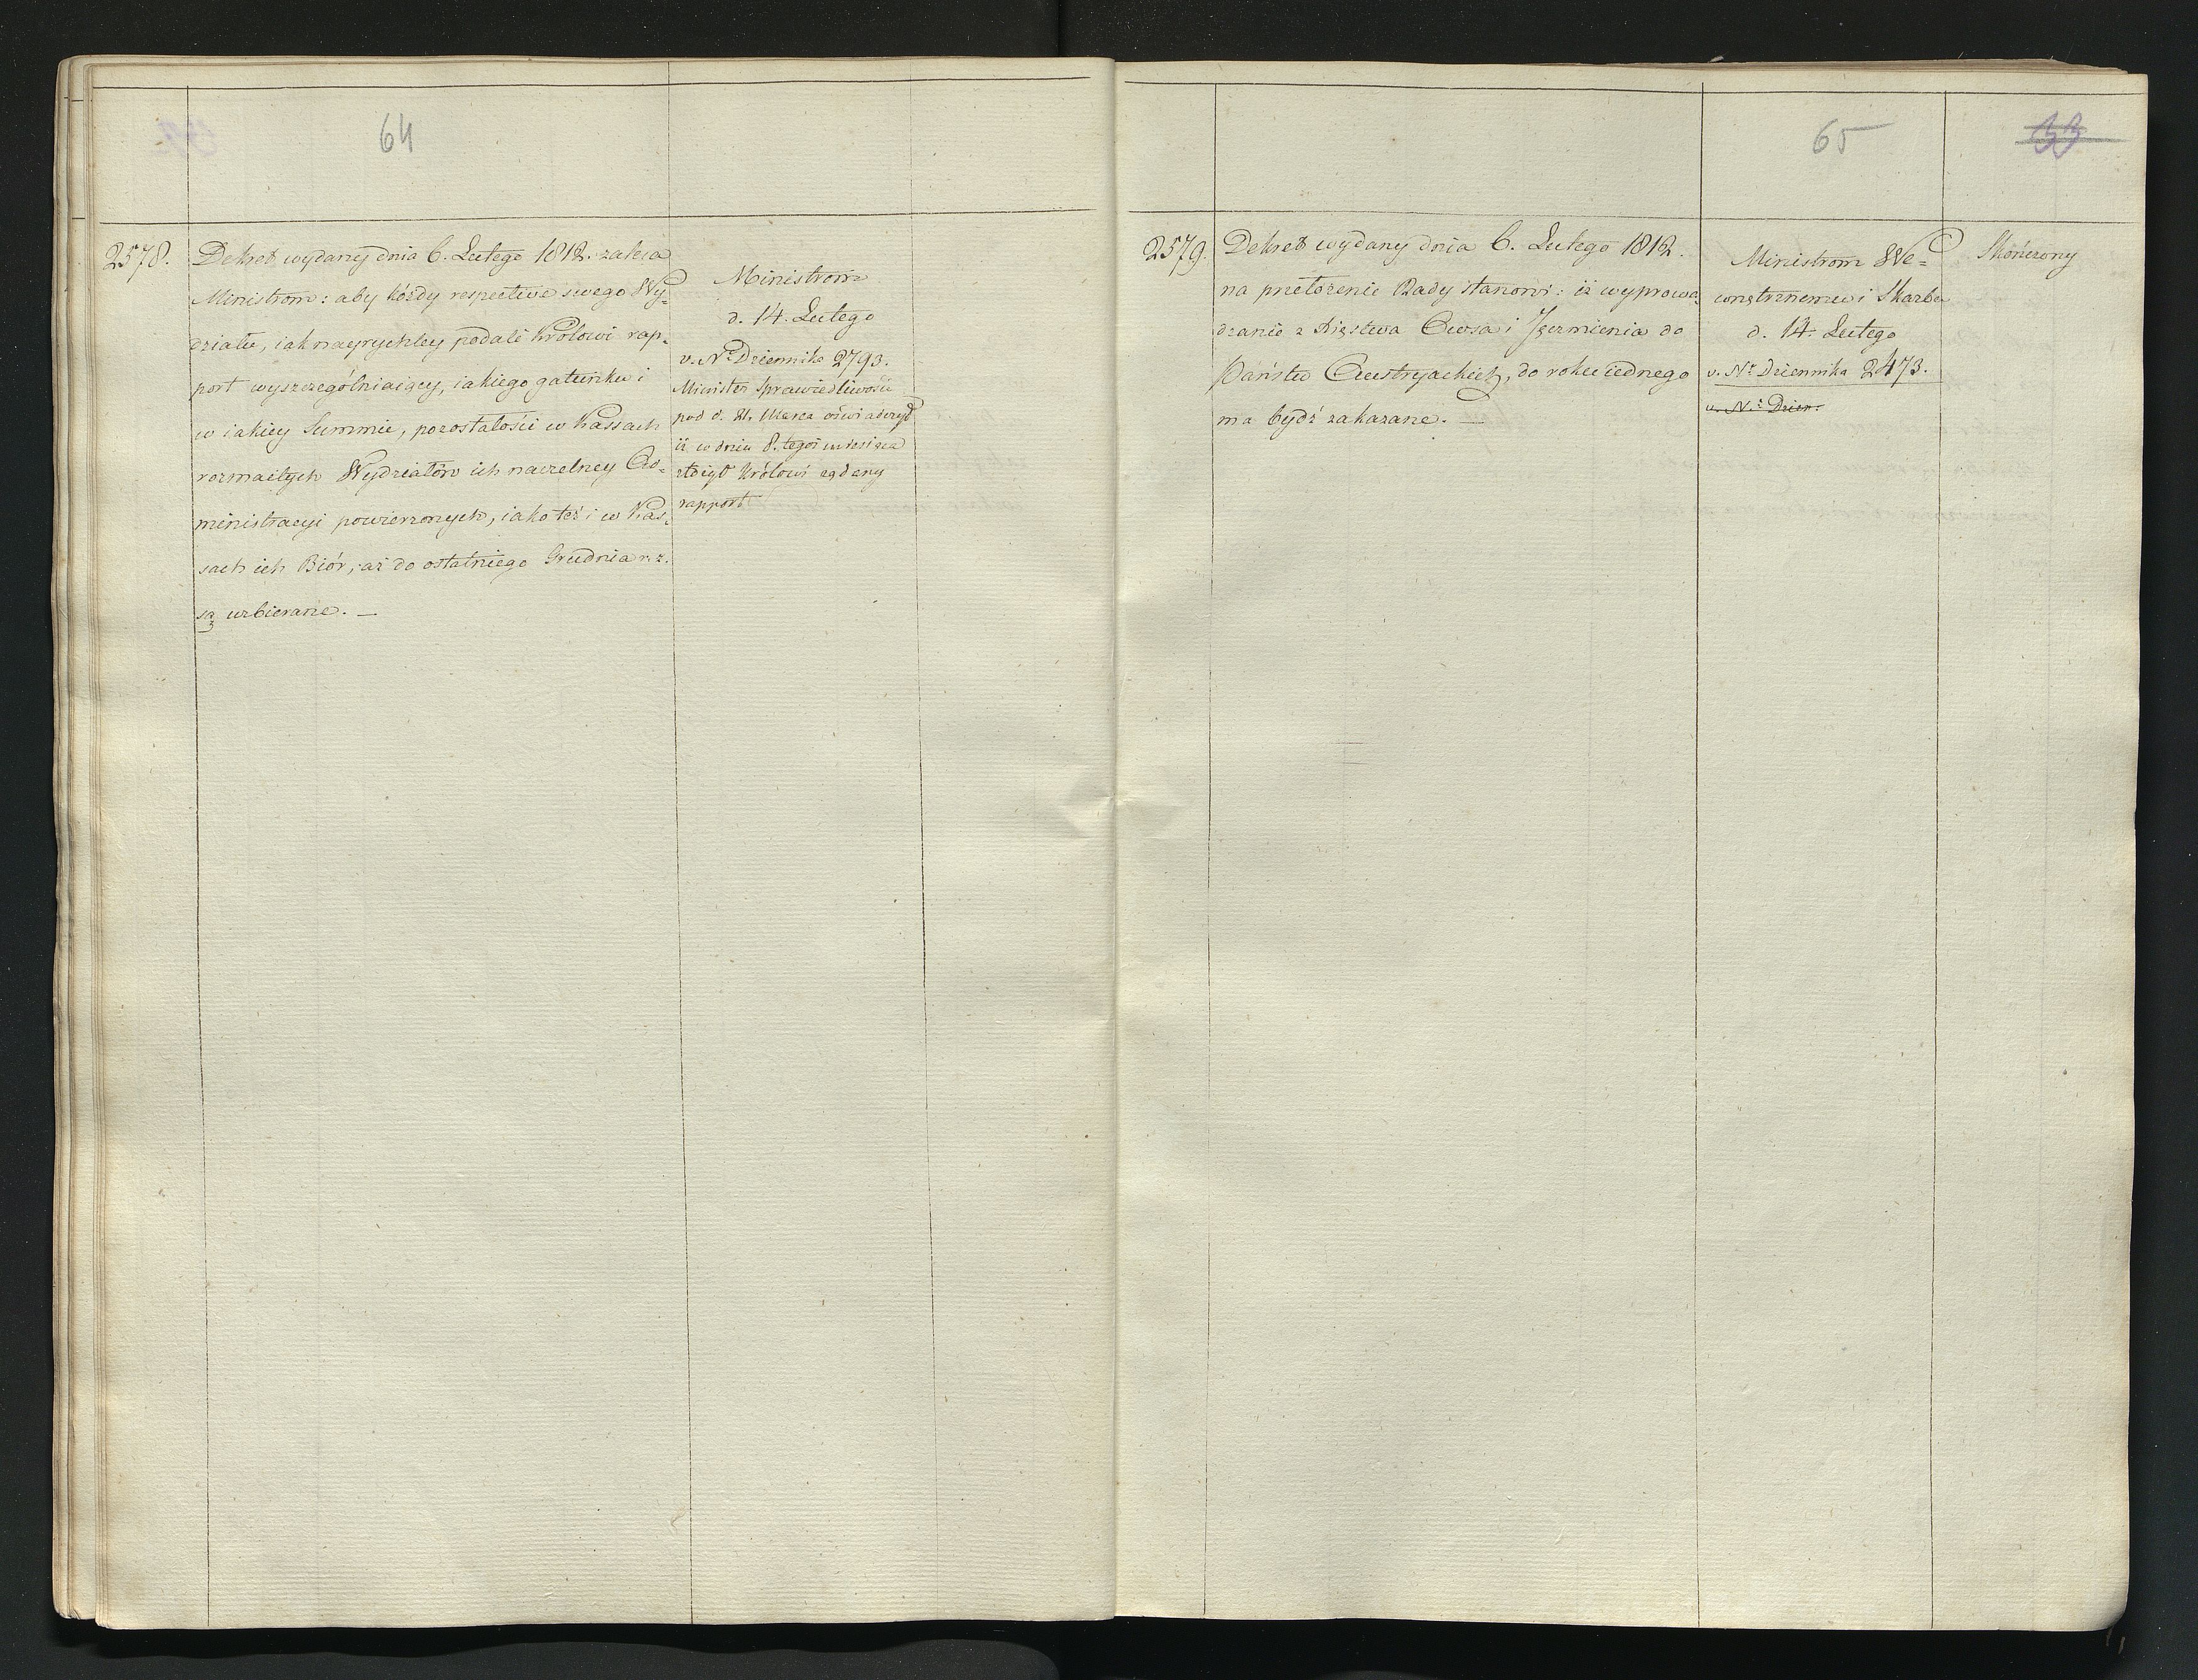 64
2578.
Dekret wydany dnia 6. Lutego 1812. zaleca
Ministrom: aby każdy respective swego Wy-
działu, iak nayprychley podali Królowi rap-
port wyszczególniaiący, iakiego gatunku i
w iakiey Summie, pozostałości w Kassach
rozmaitych Wydziałów ich naczelney Ad-
ministracyi powierzonych, iako też i w Kas-
sach ich Biór, aż do ostatniego Grudnia r. z.
są uzbierane. —
Ministrom
d. 14. Lutego
v. Nr. Dziennika 2793.
Minister Sprawiedliwości
pod d. 21. Marca oświadczył
iż w dniu 8. tegoż miesiąca
złożył Królowi żądany
rapport
65
33
2579.
Dekret wydany dnia 6. Lutego 1812.
na przełożenie Rady stanowi: iż wyprowa-
dzanie z Xięstwa Owsa i Jęczmienia do
Państw Austryackich, do roku iednego
ma bydź zakazane. —
Ministrom We=
wnętrznemu i Skarbu
d. 14. Lutego
v. Nr. Dziennika 2473.
v. Nr. Dzien.
Skończony